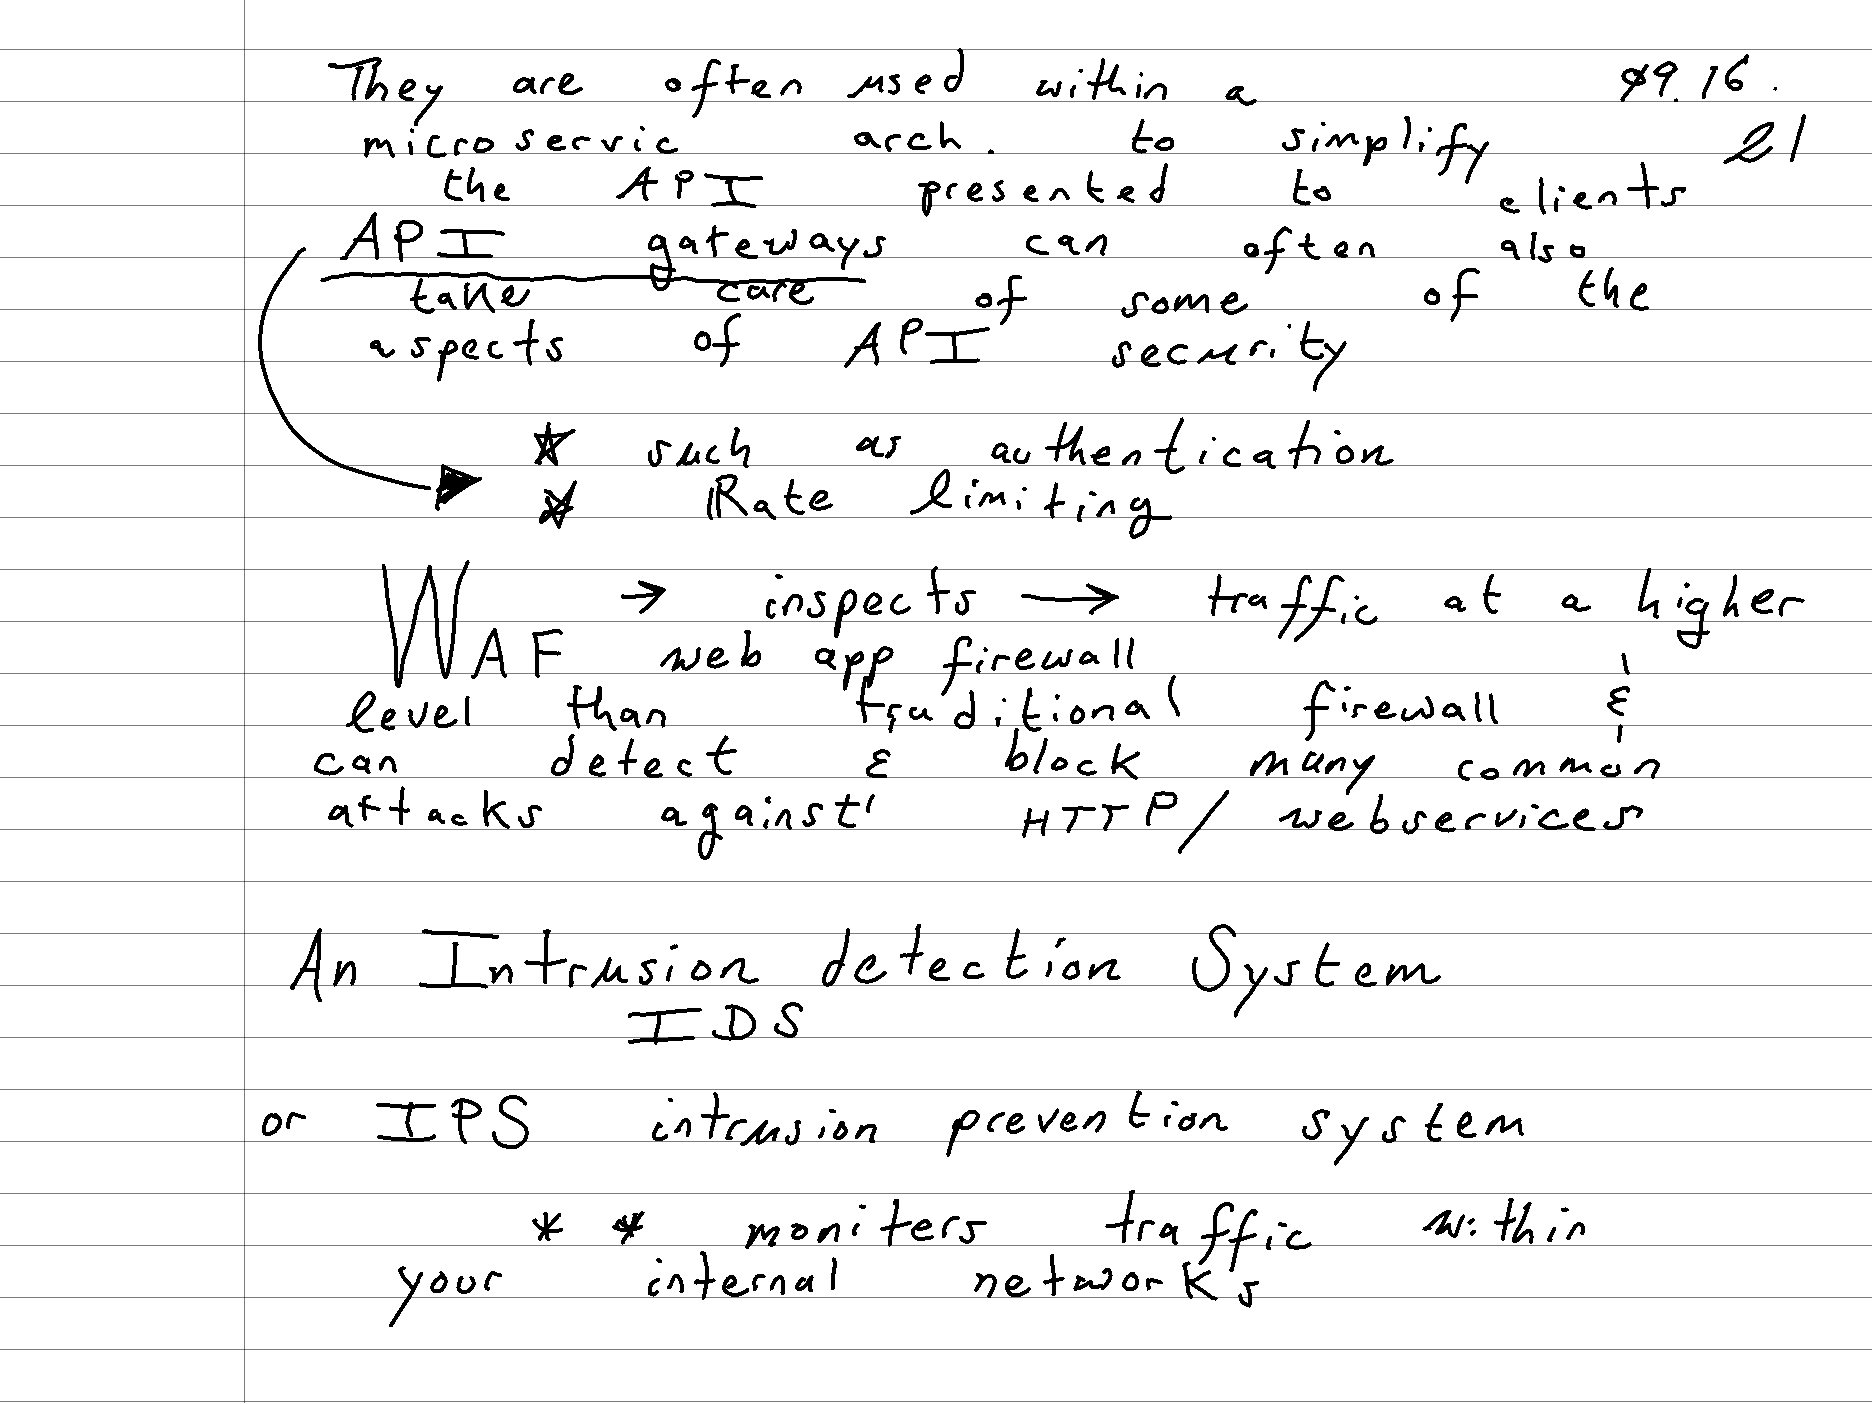 They are often used within a 09.16.
microservic arch. to simplify 21
the API presented to clients
API gateways can often also
take care of some of the
aspects of API security
* such as authentication
* Rate limiting
WAF → inspects → traffic at a higher
web app firewall
level than traditional firewall &
can detect & block many common
attacks against HTTP/ webservices
An Intrusion detection System
IDS
or IPS intrusion prevention system
* * moniters traffic within
your internal networks